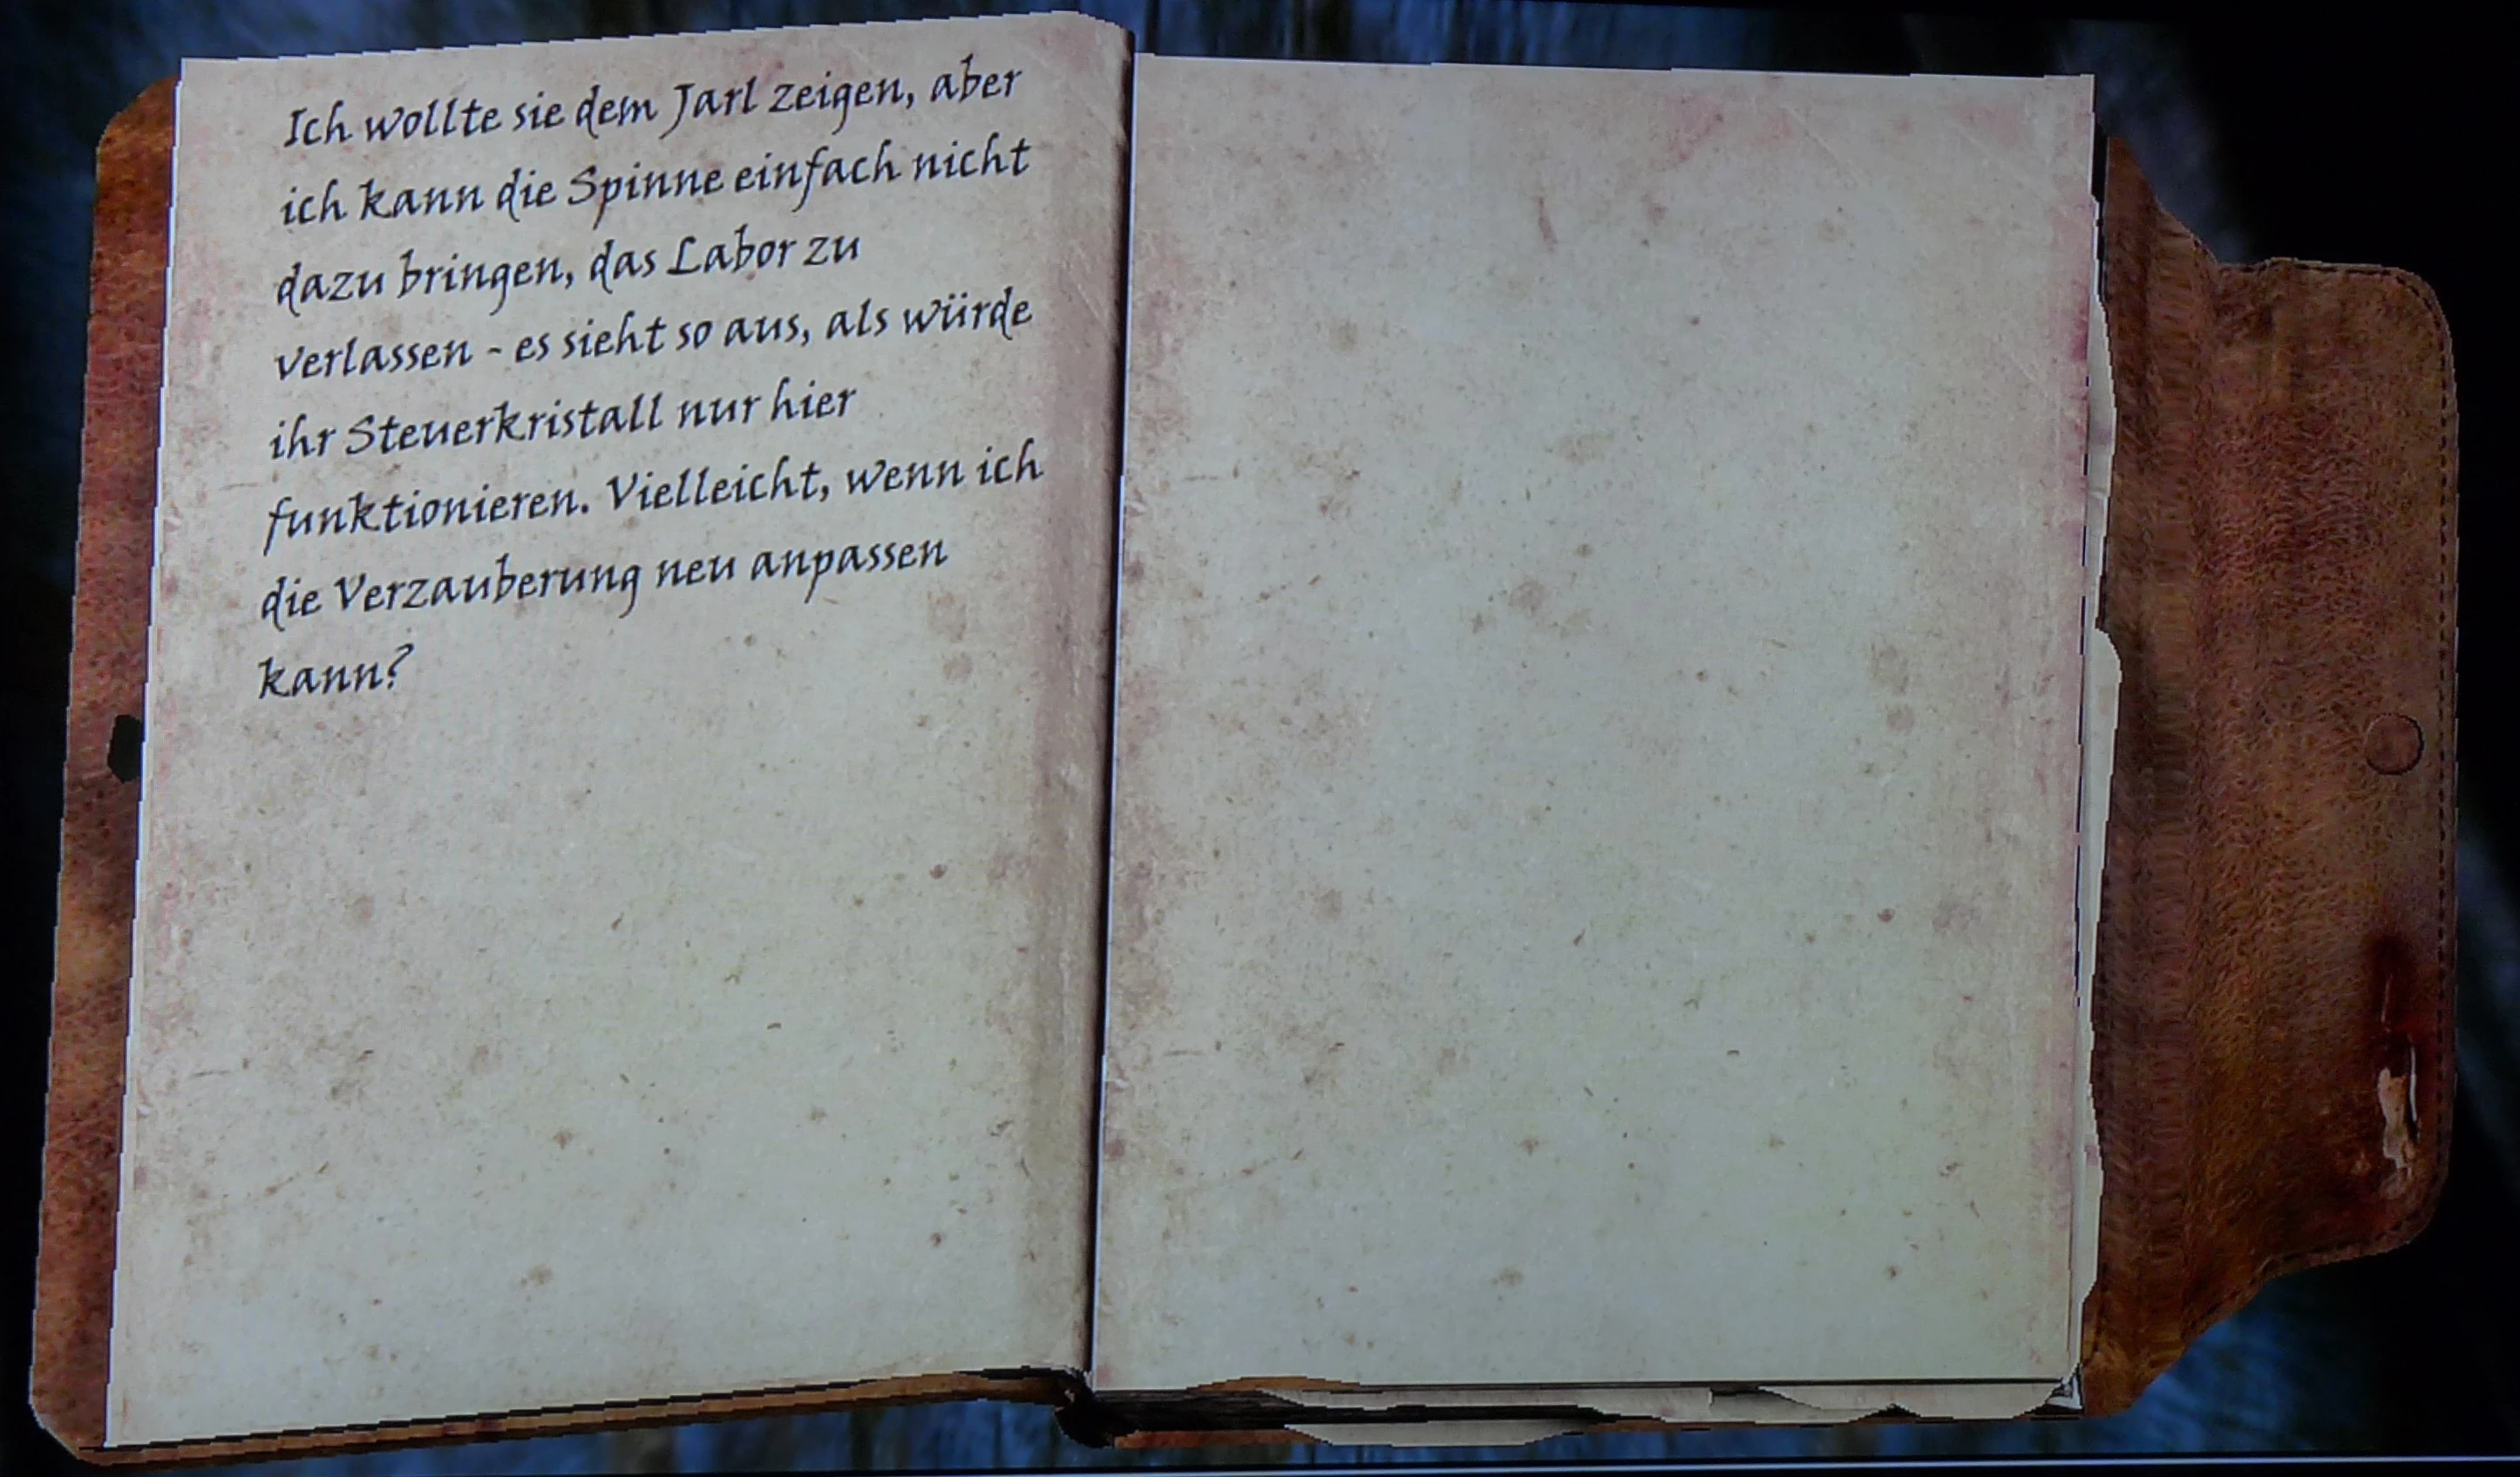 Ich wollte sie dem Jarl zeigen, aber
ich kann die Spinne einfach nicht
dazu bringen, das Labor zu
verlassen - es sieht so aus, als würde
ihr Steuerkristall nur hier
funktionieren. Vielleicht, wenn ich
die Verzauberung neu anpassen
kann?